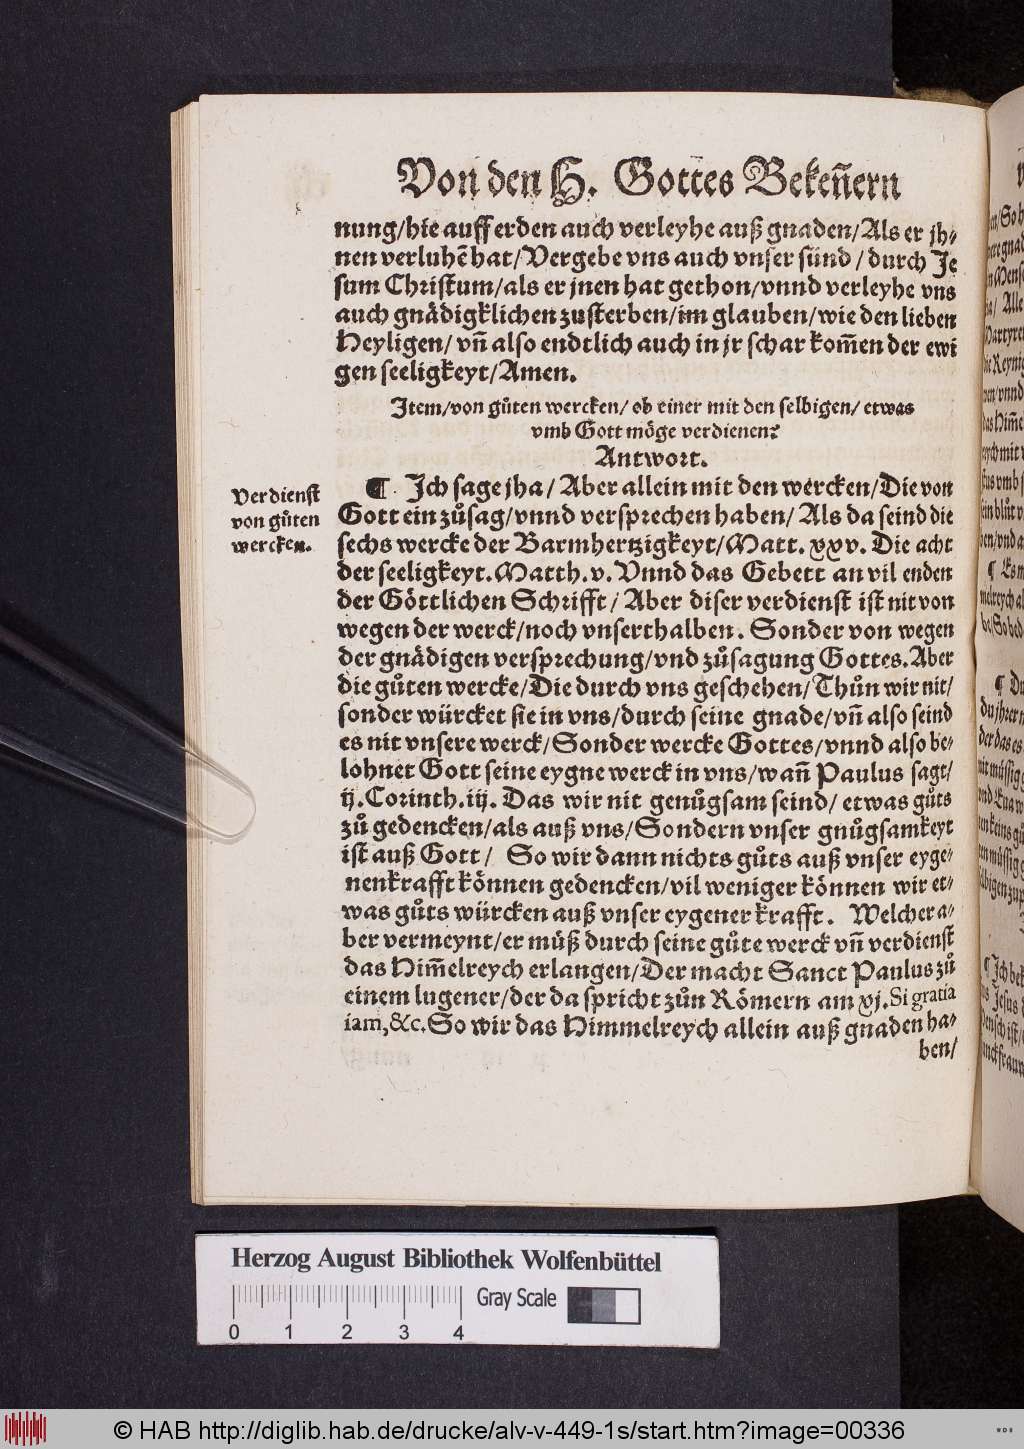 Von den H. Gottes Bekeñern
nung/hie auff erden auch verleyhe auß gnaden/Als er jh-
nen verluhẽ hat/Vergebe vns auch vnser sünd/durch Je
sum Christum/als er jnen hat gethon/vnnd verleyhe vns
auch gnädigklichen zusterben/im glauben/wie den lieben
Heyligen/vñ also endtlich auch in jr schar kom̃en der ewi
gen seeligkeyt/Amen.
Item/von gůten wercken/ob einer mit den selbigen/etwas
vmb Gott möge verdienen?
Antwort.
¶ Ich sage jha/Aber allein mit den wercken/Die von
Gott ein zůsag/vnnd versprechen haben/Als da seind die
sechs wercke der Barmhertzigkeyt/Matt. xxv. Die acht
der seeligkeyt. Matth. v. Vnnd das Gebett an vil enden
der Göttlichen Schrifft/Aber diser verdienst ist nit von
wegen der werck/noch vnserthalben. Sonder von wegen
der gnädigen versprechung/vnd zůsagung Gottes. Aber
die gůten wercke/Die durch vns geschehen/Thůn wir nit/
sonder würcket sie in vns/durch seine gnade/vñ also seind
es nit vnsere werck/Sonder wercke Gottes/vnnd also be-
lohnet Gott seine eygne werck in vns/wañ Paulus sagt/
ij. Corinth. iij. Das wir nit genůgsam seind/etwas gůts
zů gedencken/als auß vns/Sondern vnser gnůgsamkeyt
ist auß Gott/ So wir dann nichts gůts auß vnser eyge-
nen krafft können gedencken/vil weniger können wir et-
was gůts würcken auß vnser eygener krafft. Welcher a-
ber vermeynt/er můß durch seine gůte werck vñ verdienst
das Him̃elreych erlangen/Der macht Sanct Paulus zů
einem lugener/der da spricht zůn Römern am xj. Si gratia
iam, &c. So wir das Himmelreych allein auß gnaden ha-
ben/
Verdienst
von gůten
wercken.
Herzog August Bibliothek Wolfenbüttel
0 1 2 3 4
Gray Scale
© HAB http://diglib.hab.de/drucke/alv-v-449-1s/start.htm?image=00336